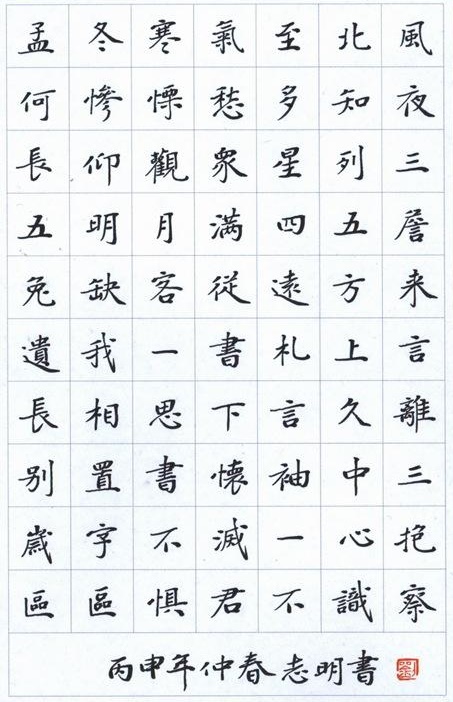 孟冬寒氣至北風
何慘慄愁多知夜
長仰觀衆星列三
五明月滿四五詹
兔缺客從遠方来
遺我一書札上言
長相思下言久離
别置書懷袖中三
歲字不滅一心抱
區區懼君不識察
丙申年仲春志明書
劉